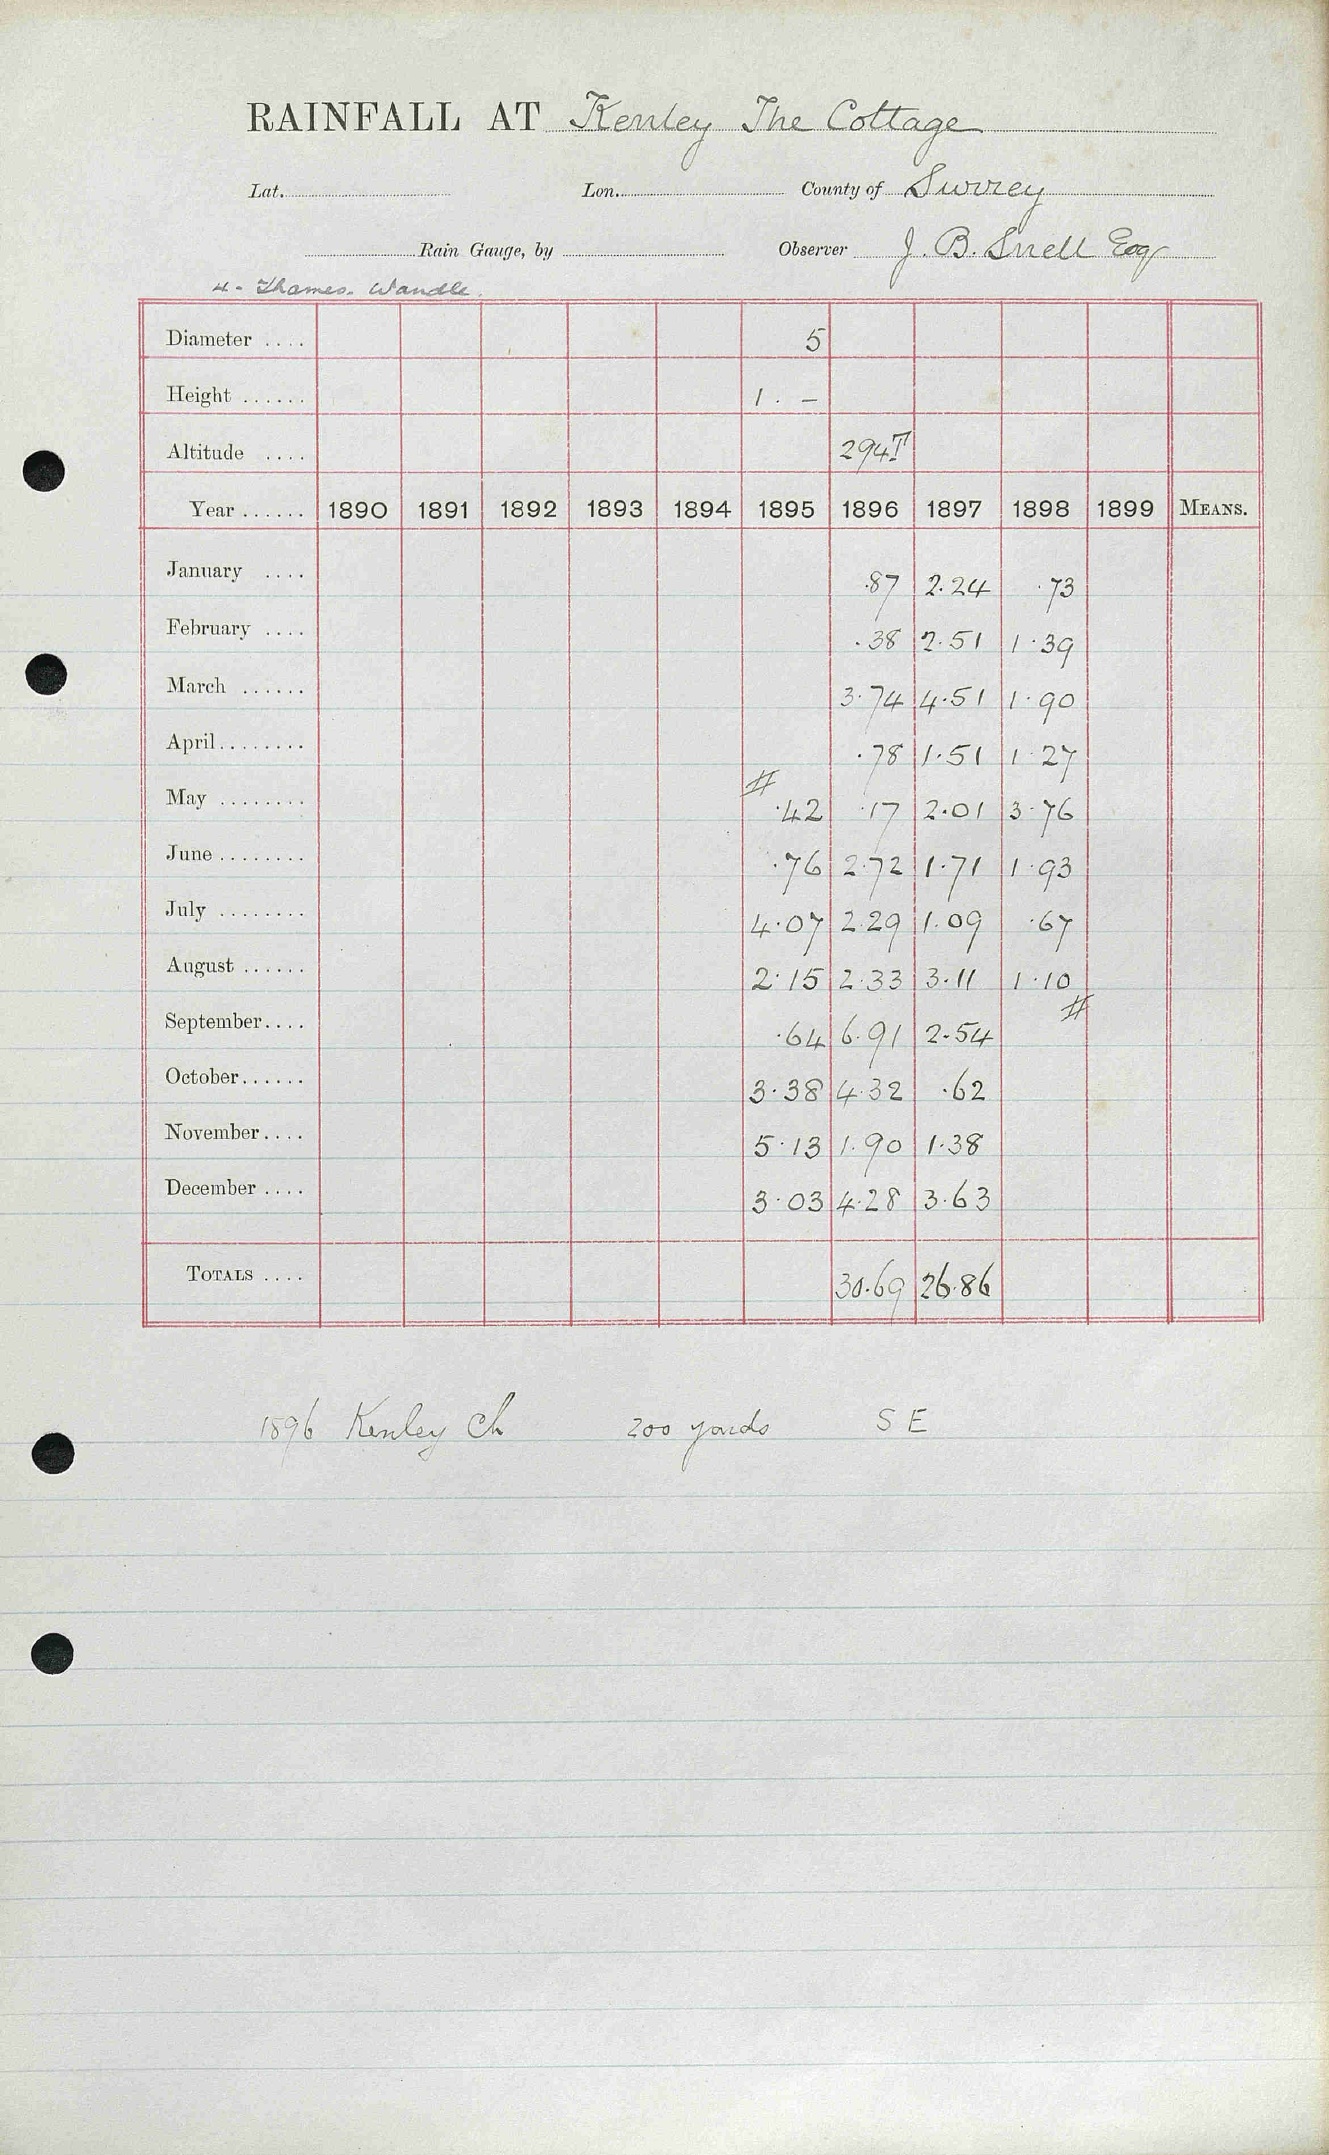 RAINFALL AT Kenley The Cottage
Lat. Lon. County of Surrey
Rain Gauge, by Observer J. B. Snell Esq
4. Thames. Wandle.
Diameter .... 5
Height ...... 1 . –
Altitude .... 294T
Year ...... 1890 1891 1892 1893 1894 1895 1896 1897 1898 1899 MEANS.
January .... .87 2.24 .73
February .... .38 2.51 1.39
March ...... 3.74 4.51 1.90
April........ .78 1.51 1.27
#
May ........ .42 .17 2.01 3.76
June ........ .76 2.72 1.71 1.93
July ........ 4.07 2.29 1.09 .67
August ...... 2.15 2.33 3.11 1.10
#
September.... .64 6.91 2.54
October...... 3.38 4.32 .62
November.... 5.13 1.90 1.38
December .... 3.03 4.28 3.63
TOTALS .... 30.69 26.86
1896 Kenley Ch 200 yards S E